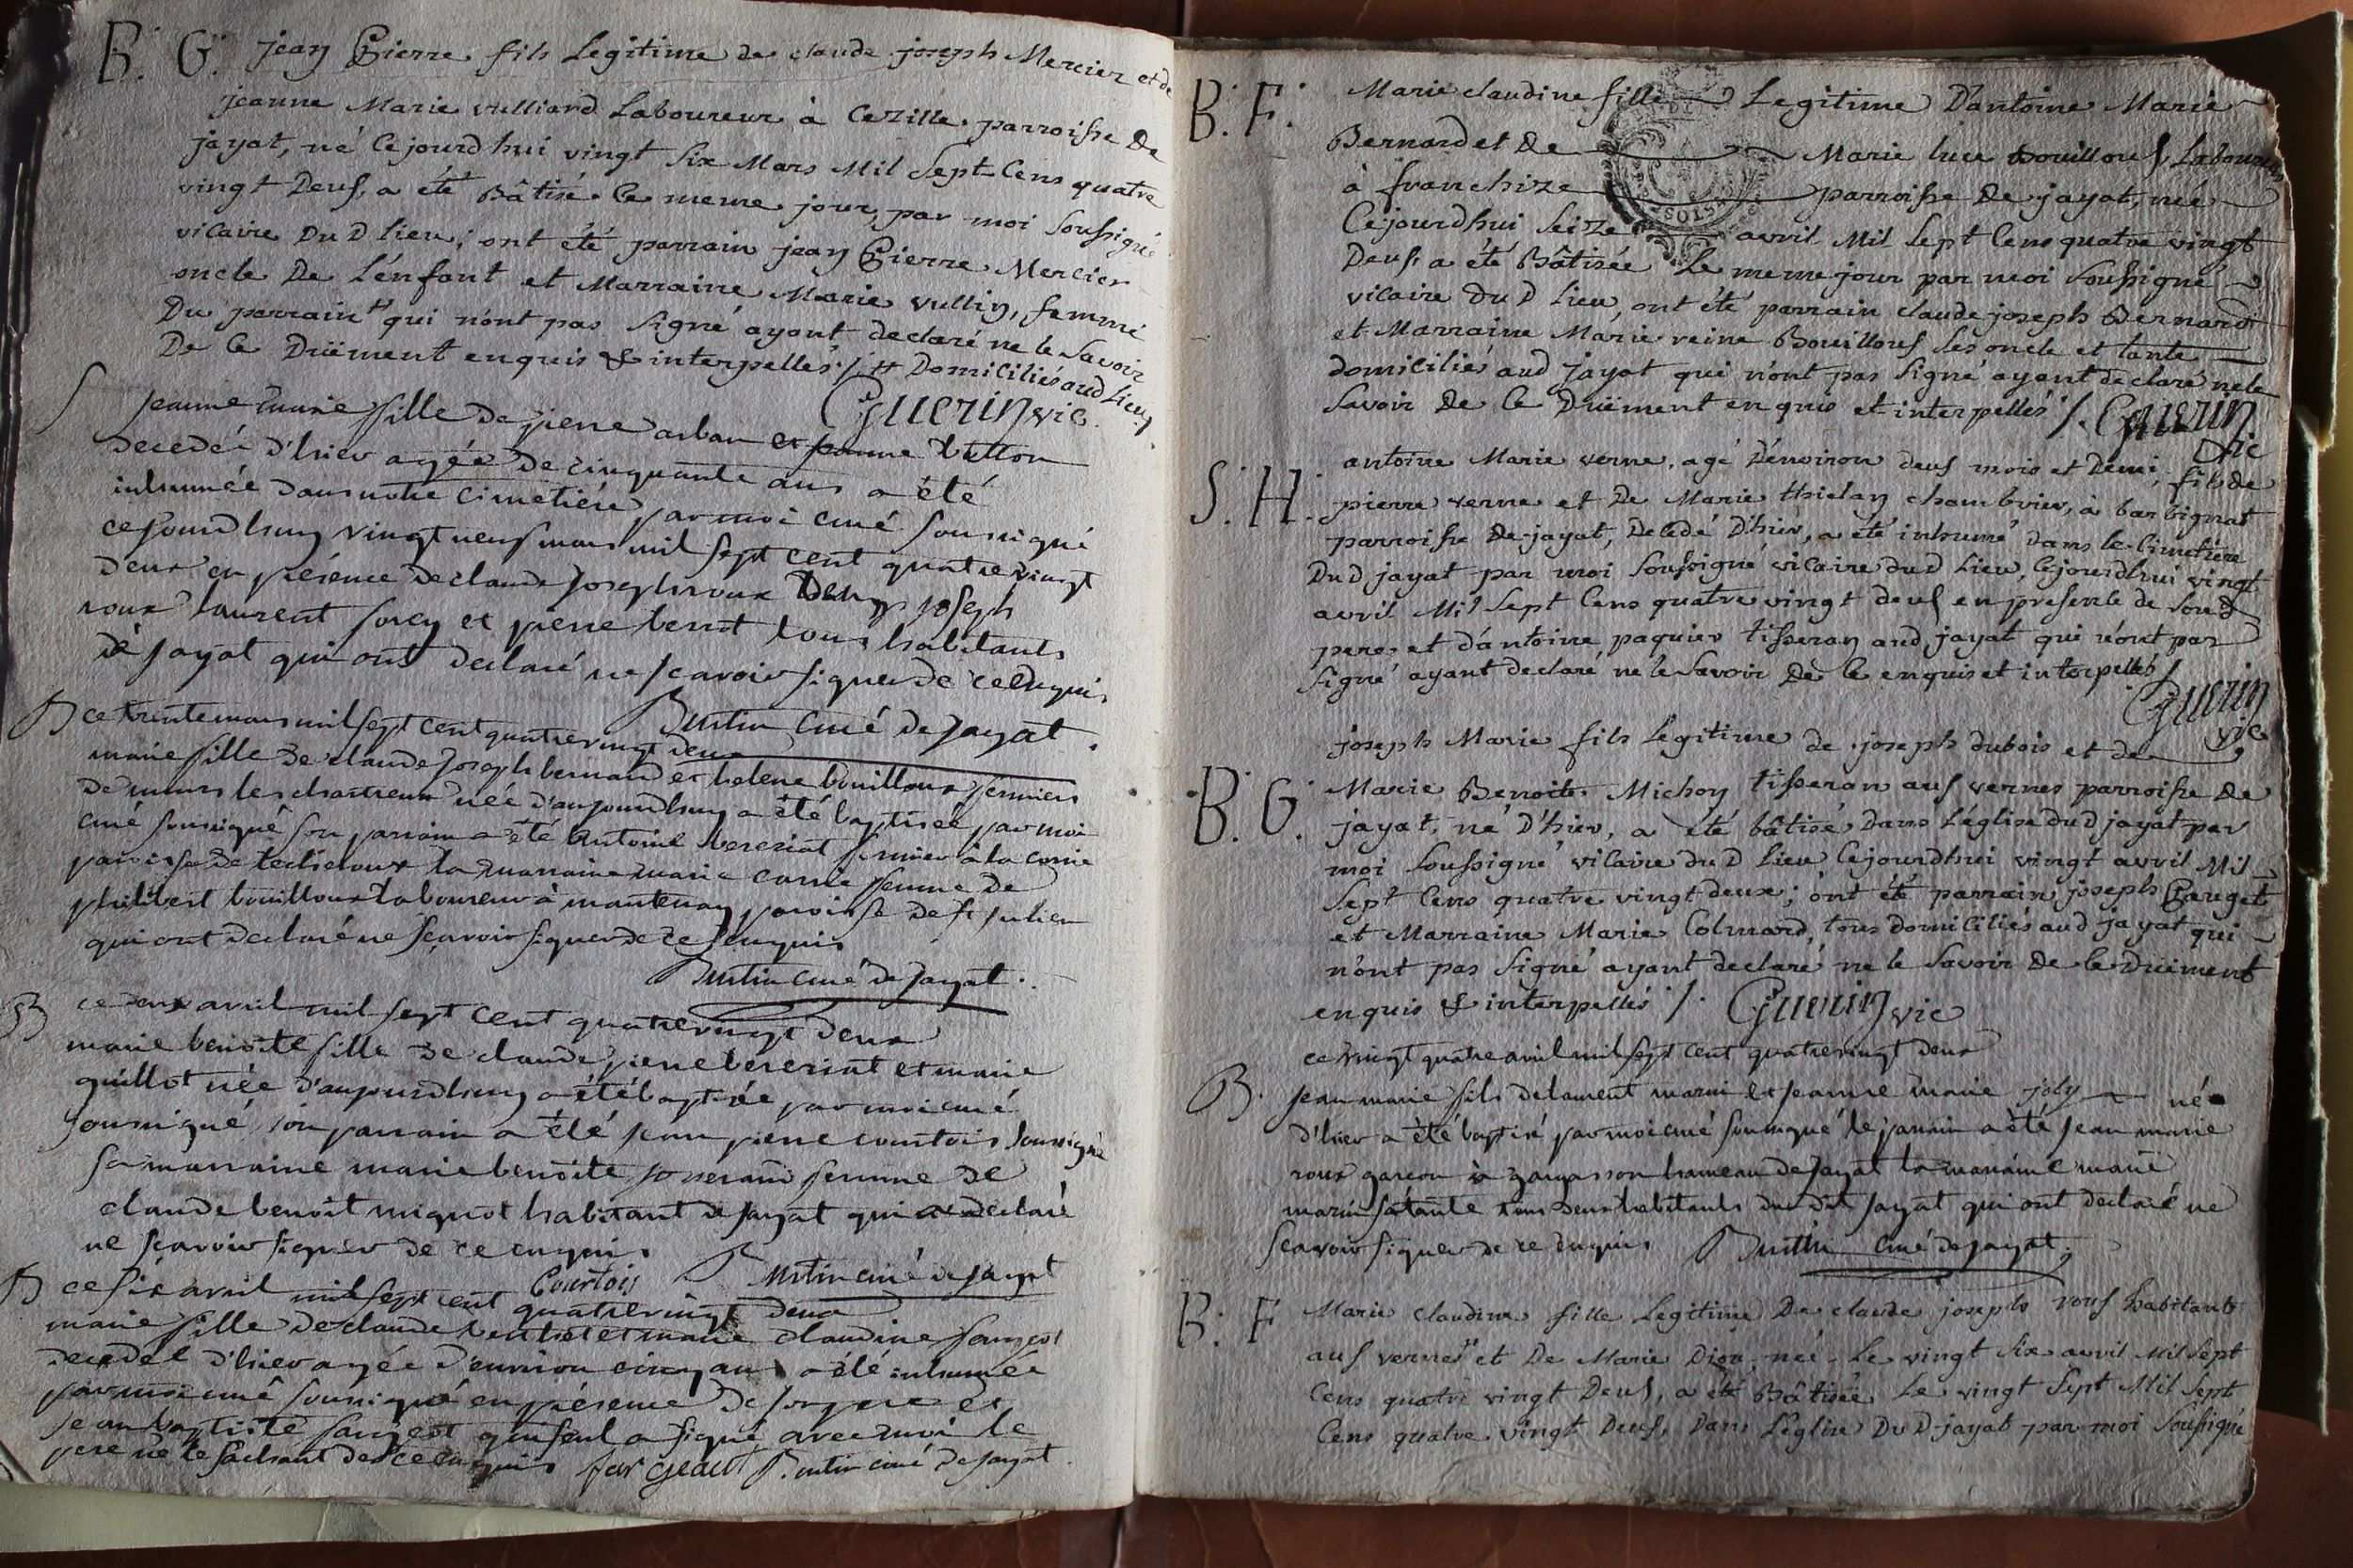 B. G. jean Pierre fils Legitime de claude joseph Mercier et de
jeanne Marie vulliard Laboureur à Cezille parroisse De
jayat, né Cejourd'hui vingt Six Mars Mil Sept Cens quatre
vingt Deus, a été Bâtisé le meme jour, par moi Soussigné
vicaire Du D lieu; ont été parrain jean Pierre Mercier
oncle De L'enfant et Marraine Marie vullin, femme
Du parrain # qui n'ont pas Signé ayant declaré ne le Savoir
De Ce Düement enquis & interpellés /. # Domiciliés aud Lieu
Guerin vic.
S jeanne marie fille de pierre arban et jeanne
decedée d'hier agée de cinquante ans a été
inhumée dans notre cimetière par moi curé soussigné
cejourdhuy vingt neuf mars mil sept cent quatre vingt
deux en présence de claude joseph roux joseph
roux laurent et pierre tous habitants
de jayat qui ont declaré ne scavoir signer de ce enquis
Buntin curé de jayat.
B ce trente mars mil sept cent quatre vingt deux
marie fille de claude joseph bernard et helene bouilloux fermiers
de née d'aujourdhuy a été baptisée par moi
curé soussigné son parrain a été antoine bereziat fermier à la
paroisse de la marraine marie femme de
philibert bouilloux laboureur à mantenay paroisse de st julien
qui ont declaré ne scavoir signer de ce enquis
Buntin curé de jayat.
B ce deux avril mil sept cent quatre vingt deux
marie benoite fille de claude pierre bereziat et marie
guillot née d'aujourdhuy a été baptisée par moi curé
soussigné, son parrain a été jean pierre courtois soussigné
sa marraine marie benoite femme de
claude benoit mignot habitant de jayat qui a declaré
ne scavoir signer de ce enquis
Courtois Buntin curé de jayat
B ce six avril mil sept cent quatre vingt deux
marie fille de claude et marie claudine
decedée d'hier agée d'environ cinq ans a été inhumée
par moi curé soussigné en présence de son pere et
jean baptiste qui seul a signé avec moi le
pere ne le sachant de ce enquis Buntin curé de jayat.
B. F. Marie claudine fille Legitime D'antoine Marie
Bernard et De Marie luce Bouillous, Laboureur
à franchize parroisse De jayat, née
Cejourdhui Seize avril Mil Sept Cens quatre vingt
Deus, a été Bâtisée Le meme jour par moi Soussigné
vicaire du D Lieu, ont été parrain claude joseph Bernard
et Marraine Marie reine Bouillous ses oncle et tante
domiciliés aud jayat qui n'ont pas Signé ayant declaré ne le
Savoir De Ce Düement enquis et interpellés /. Guerin
Vic
S. H. antoine Marie verne, agé D'environ deus mois et Demi, fils de
pierre verne et De Marie thielan chambrier, à barbignat
parroisse De jayat, Decedé D'hier, a été inhumé dans le Cimetiere
Du D jayat par moi Soussigné vicaire du D Lieu, Cejourdhui vingt
avril Mil Sept Cens quatre vingt deus en presence de Son D
pere, et d'antoine paquier tisseran aud jayat qui n'ont pas
Signé ayant declaré ne le Savoir De Ce enquis et interpellés /.
Guerin
vic
joseph Marie fils Legitime de joseph dubois et de
B. G. Marie Benoite Michon tisseran aus vernes parroisse De
jayat, né D'hier, a été bâtisé Dans L'église du D jayat par
moi Soussigné vicaire du D Lieu Cejourdhui vingt avril Mil
Sept Cens quatre vingt deux; ont été parrain joseph Pauget
et Marraine Marie Colmard, tous domiciliés aud jayat qui
n'ont pas Signé ayant declaré ne le Savoir De Ce Düement
enquis & interpellés /. Guerin vic
ce vingt quatre avril mil sept cent quatre vingt deux
B. jean marie fils de laurent marin et jeanne marie joly né
d'hier a été baptisé par moi curé soussigné le parrain a été jean marie
roux garçon à hameau de jayat la maraine marie
marin sa tante tous deux habitants du dit jayat qui ont declaré ne
scavoir signer de ce enquis Buntin curé de jayat.
B. F Marie claudine fille Legitime De claude joseph rous habitant
aus vernes et De Marie Dion, née Le vingt Six avril Mil Sept
Cens quatre vingt Deus, a été Bâtisée Le vingt Sept Mil Sept
Cens quatre vingt Deus, Dans L'église Du D jayat par moi Soussigné